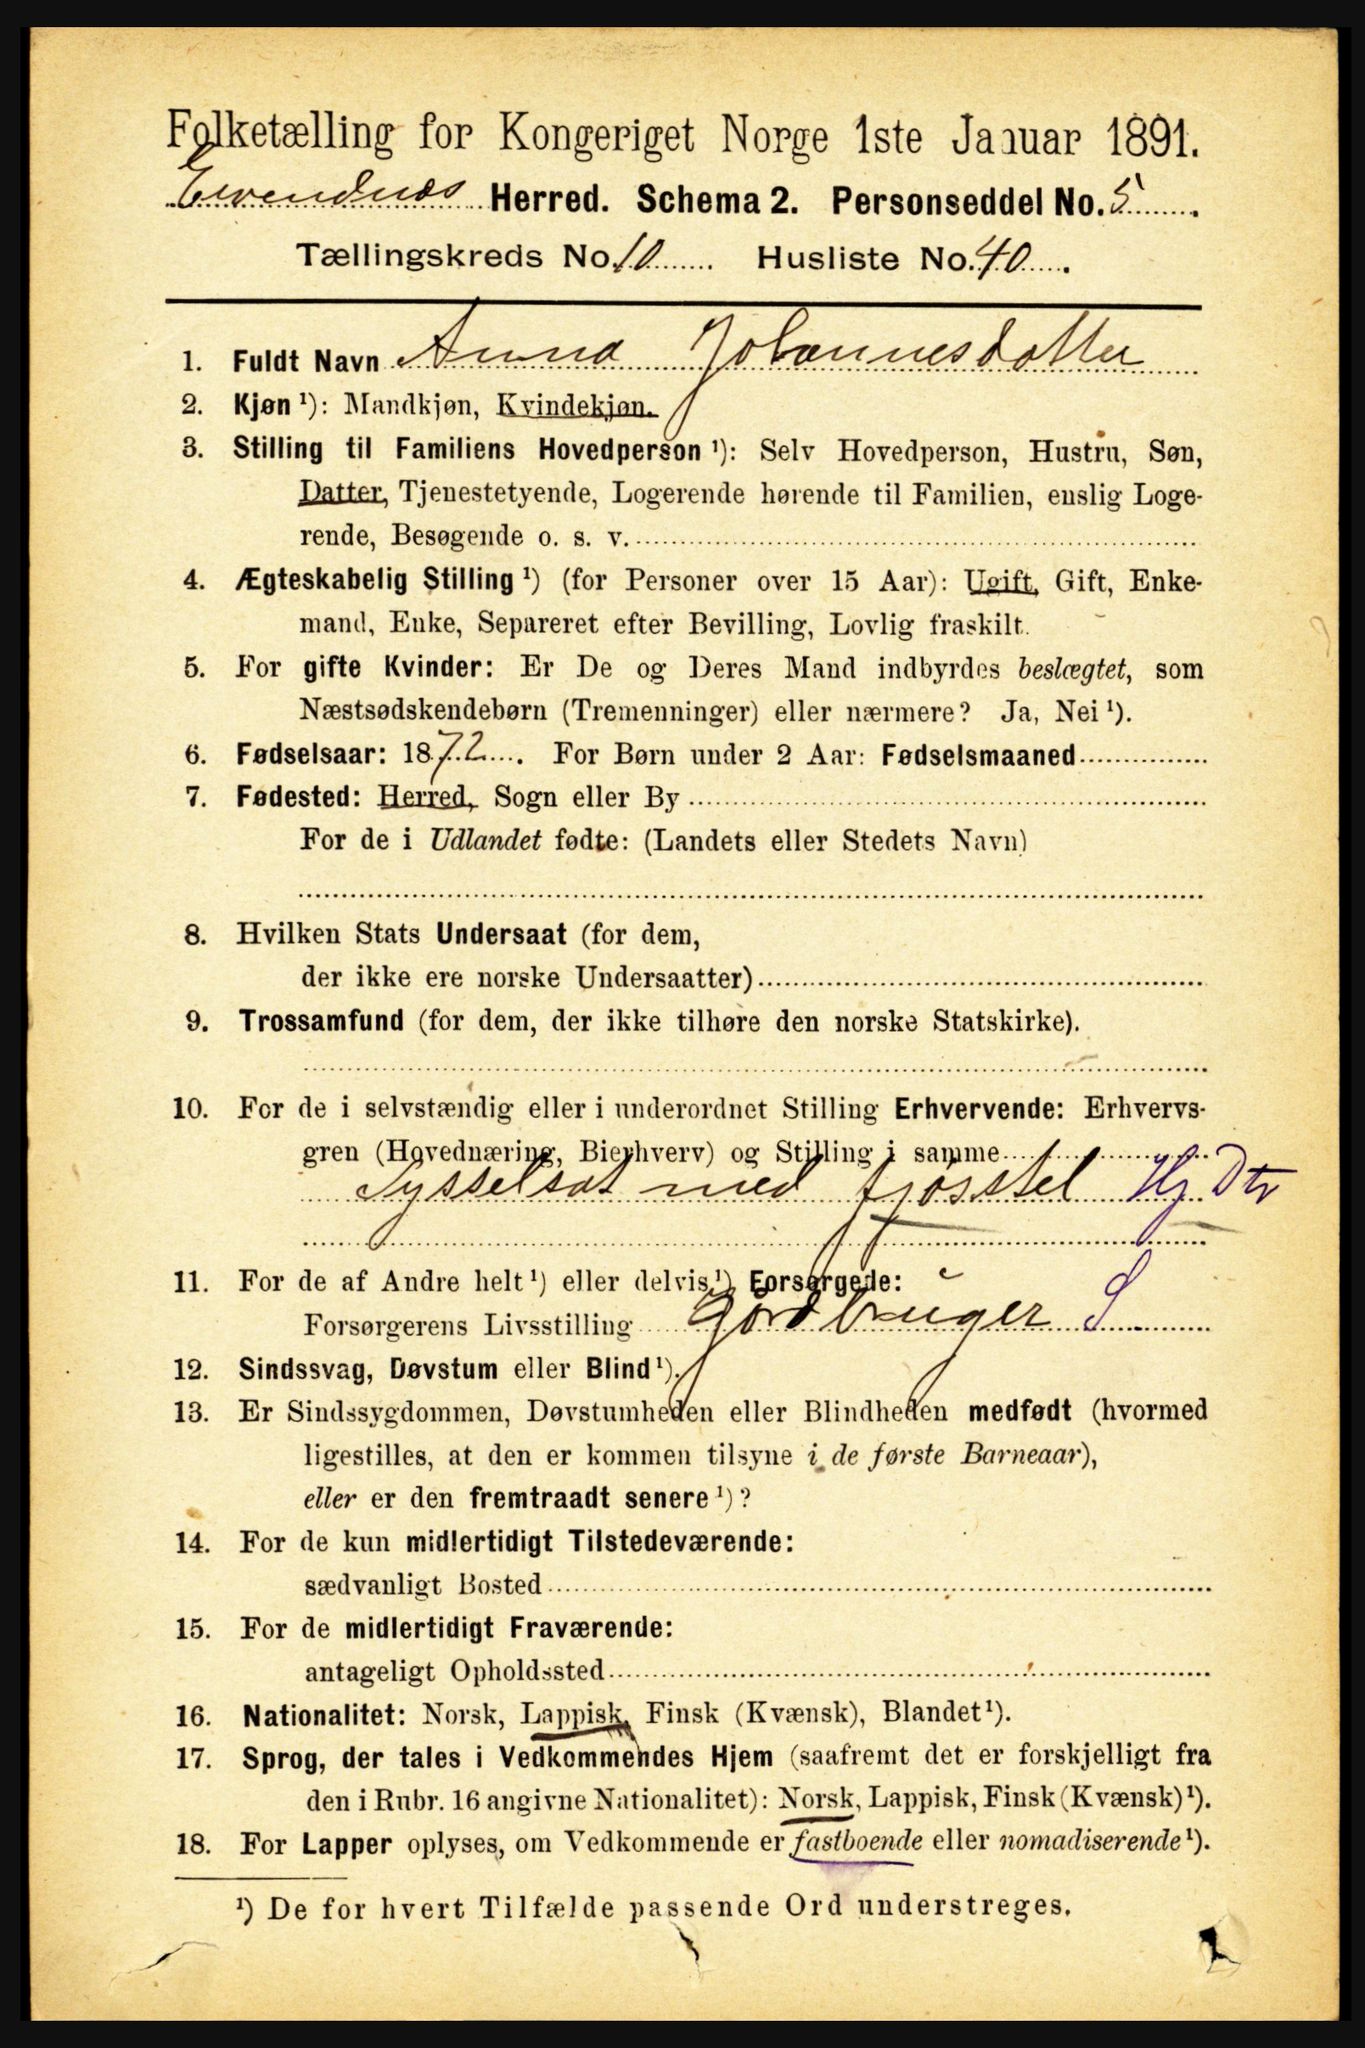 Folketælling for Kongeriget Norge 1ste Januar 1891.
Evendnæs Herred. Schema 2. Personseddel No. 5.
Tællingskreds No. 10. Husliste No. 40.
1. Fuldt Navn Anna Johannesdatter
2. Kjøn¹): Mandkjøn, Kvindekjøn.
3. Stilling til Familiens Hovedperson¹): Selv Hovedperson, Hustru, Søn,
Datter, Tjenestetyende, Logerende hørende til Familien, enslig Loge-
rende, Besøgende o. s. v.
4. Ægteskabelig Stilling¹) (for Personer over 15 Aar): Ugift, Gift, Enke-
mand, Enke, Separeret efter Bevilling, Lovlig fraskilt.
5. For gifte Kvinder: Er De og Deres Mand indbyrdes beslægtet, som
Næstsødskendebørn (Tremenninger) eller nærmere? Ja, Nei¹).
6. Fødselsaar: 1872. For Børn under 2 Aar: Fødselsmaaned
7. Fødested: Herred, Sogn eller By
For de i Udlandet fødte: (Landets eller Stedets Navn)
8. Hvilken Stats Undersaat (for dem,
der ikke ere norske Undersaatter)
9. Trossamfund (for dem, der ikke tilhøre den norske Statskirke).
10. For de i selvstændig eller i underordnet Stilling Erhvervende: Erhvervs-
gren (Hovednæring, Bierhverv) og Stilling i samme
Sysselsat med fjösstel Hj Dtr
11. For de af Andre helt¹) eller delvis¹) Forsørgede:
Forsørgerens Livsstilling Gårdbruger S
12. Sindssvag, Døvstum eller Blind¹).
13. Er Sindssygdommen, Døvstumheden eller Blindheden medfødt (hvormed
ligestilles, at den er kommen tilsyne i de første Barneaar),
eller er den fremtraadt senere¹)?
14. For de kun midlertidigt Tilstedeværende:
sædvanligt Bosted
15. For de midlertidigt Fraværende:
antageligt Opholdssted
16. Nationalitet: Norsk, Lappisk, Finsk (Kvænsk), Blandet¹).
17. Sprog, der tales i Vedkommendes Hjem (saafremt det er forskjelligt fra
den i Rubr. 16 angivne Nationalitet): Norsk, Lappisk, Finsk (Kvænsk)¹).
18. For Lapper oplyses, om Vedkommende er fastboende eller nomadiserende¹).
¹) De for hvert Tilfælde passende Ord understreges.